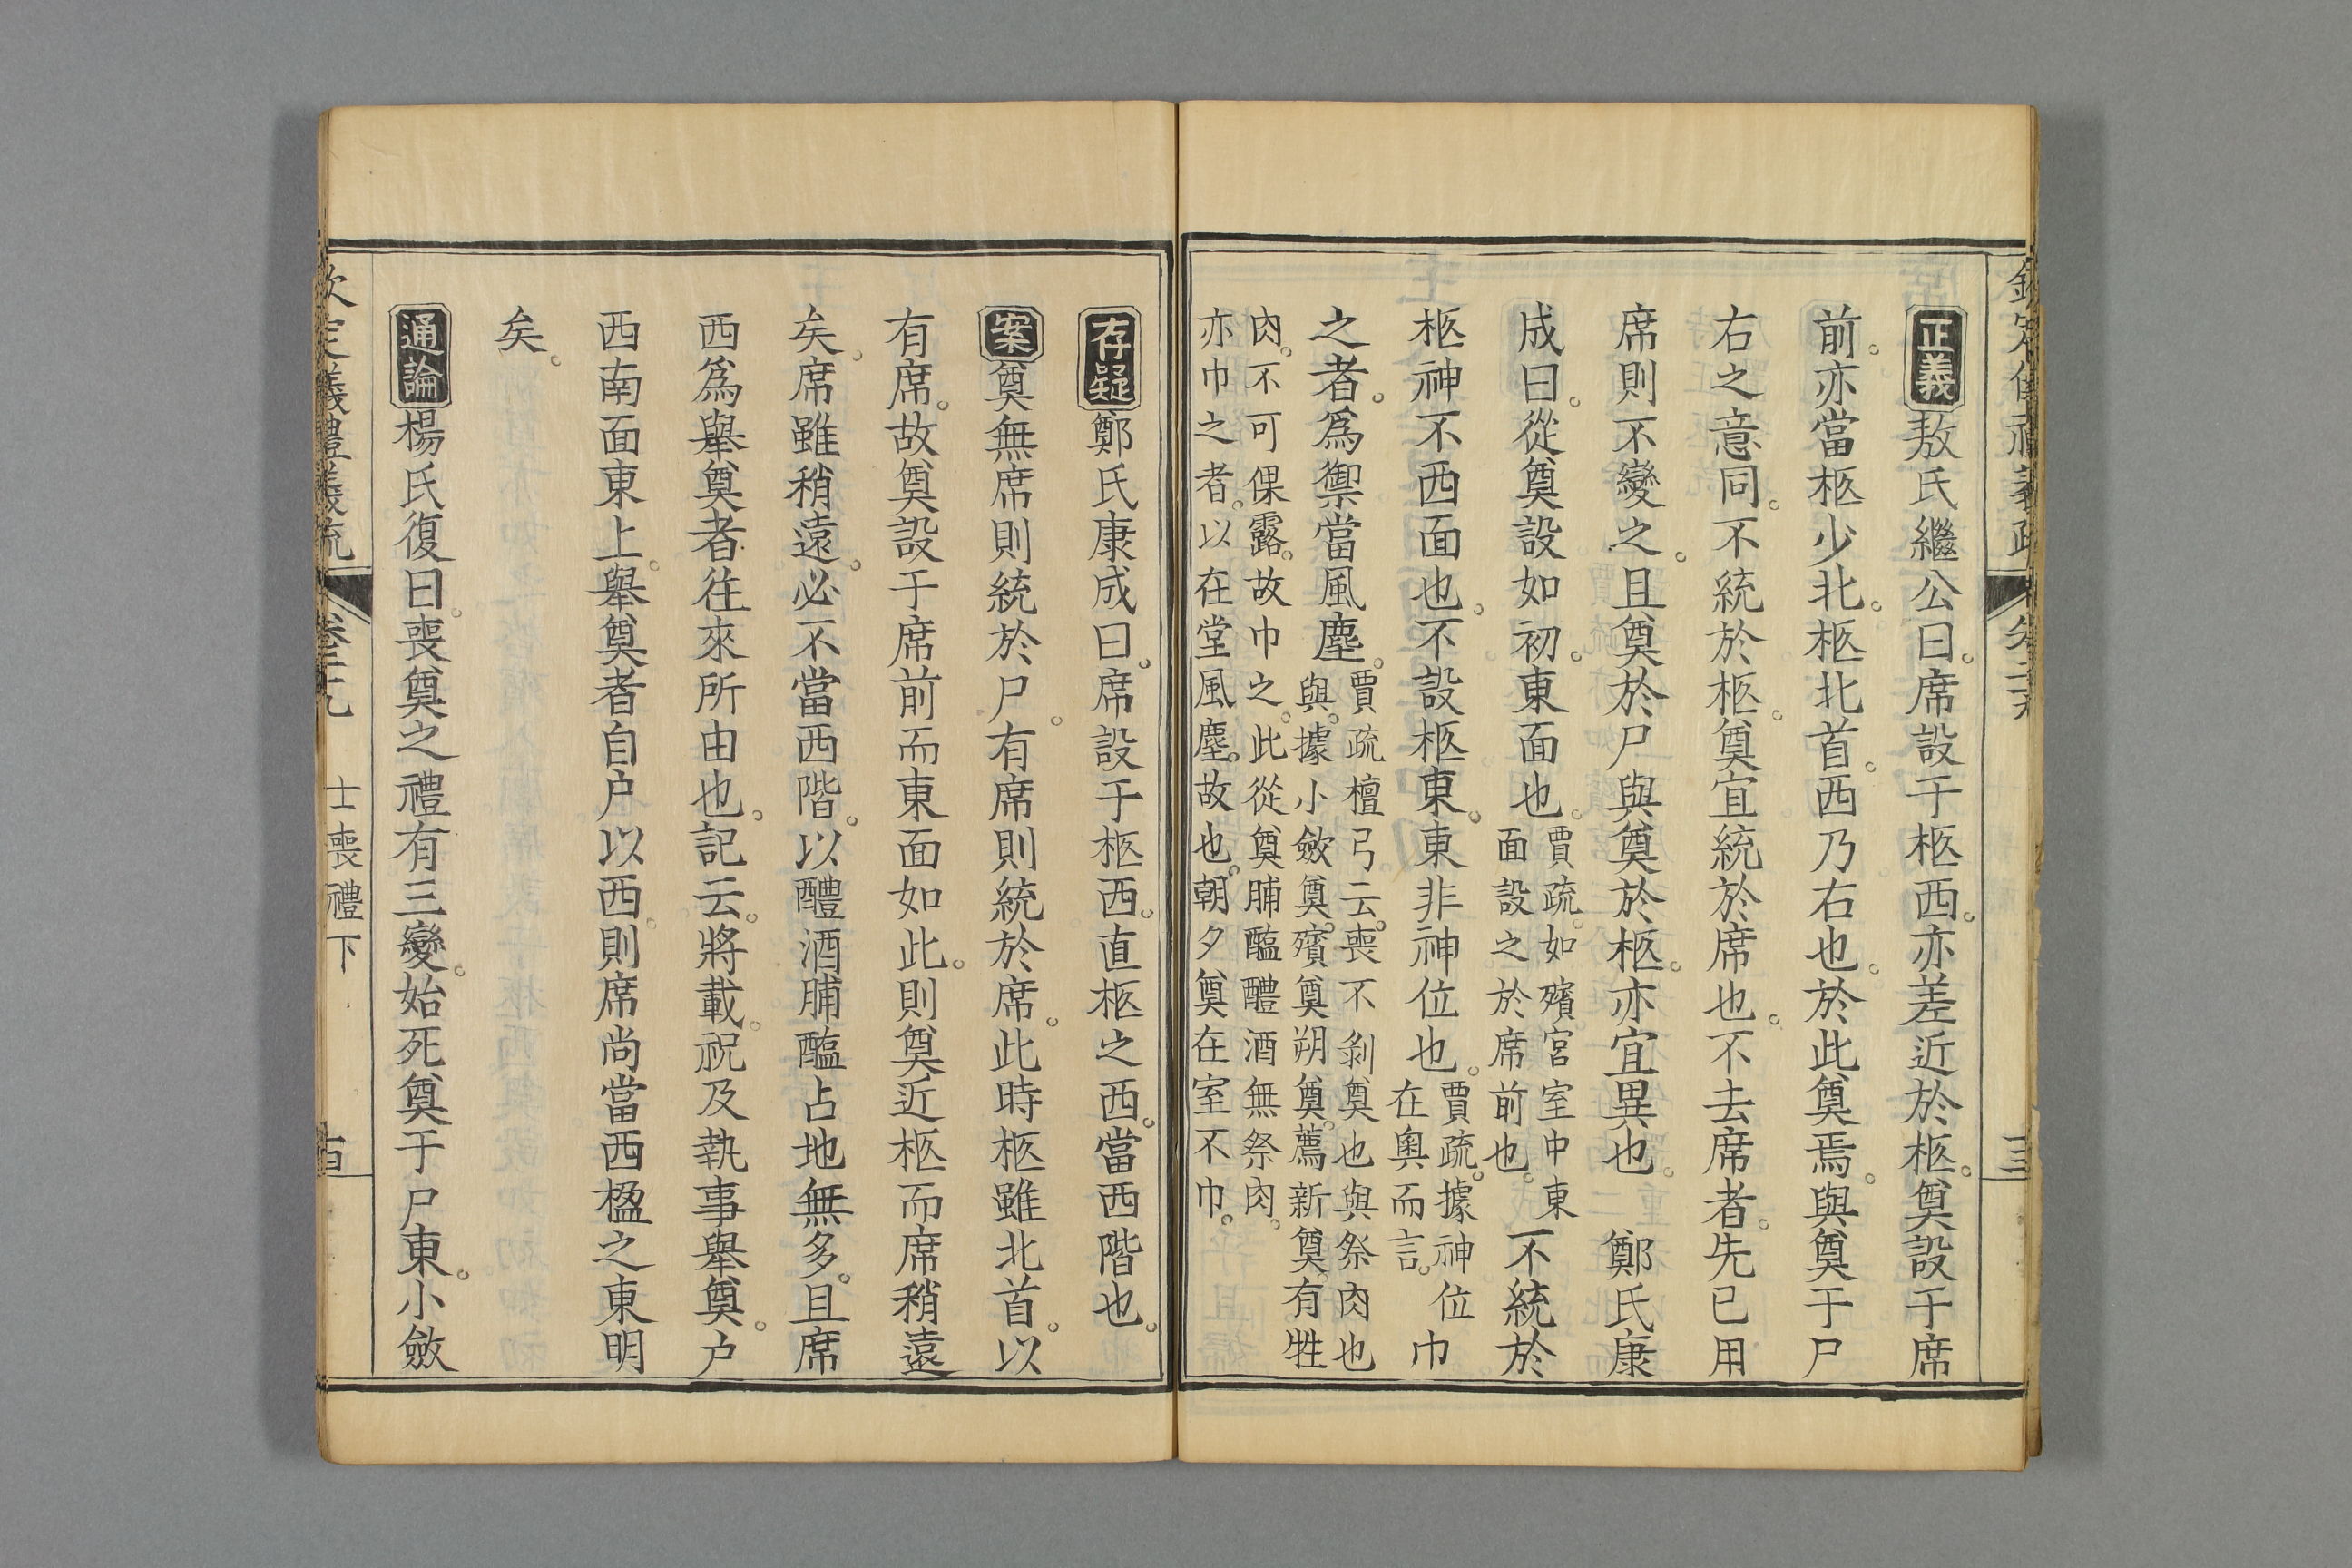 正義敖氏繼公曰。席設于柩西。亦差近於柩。奠設于席
前。亦當柩少北。柩北首。西乃右也。於此奠焉。與奠于尸
右之意同。不統於柩。奠宜統於席也。不去席者。先已用
席則不變之。且奠於尸與奠於柩。亦宜異也。鄭氏康
成曰。從奠設如初。東面也。
賈疏。如殯宮室中東
面設之於席前也。
不統於
柩神不西面也。不設柩東。東非神位也。
賈疏。據神位
在奧而言。
巾
之者。為禦當風塵。
賈疏檀弓云。喪不剝奠也與祭肉也
與。據小斂奠。殯奠朔奠。薦新奠。有牲
肉。不可倮露。故巾之。此從奠脯醢醴酒無祭肉。
亦巾之者。以在堂風塵。故也。朝夕奠在室不巾。
存疑鄭氏康成曰。席設于柩西。直柩之西。當西階也。
案奠無席則統於尸。有席則統於席。此時柩雖北首。以
有席。故奠設于席前而東面如此。則奠近柩而席稍遠
矣。席雖稍遠。必不當西階。以醴酒脯醢占地無多。且席
西為舉奠者往來所由也。記云。將載。祝及執事舉奠。户
西南面東上。舉奠者自户以西。則席尚當西楹之東明
矣。
通論楊氏復曰。喪奠之禮有三變。始死奠于尸東。小斂
士喪禮下